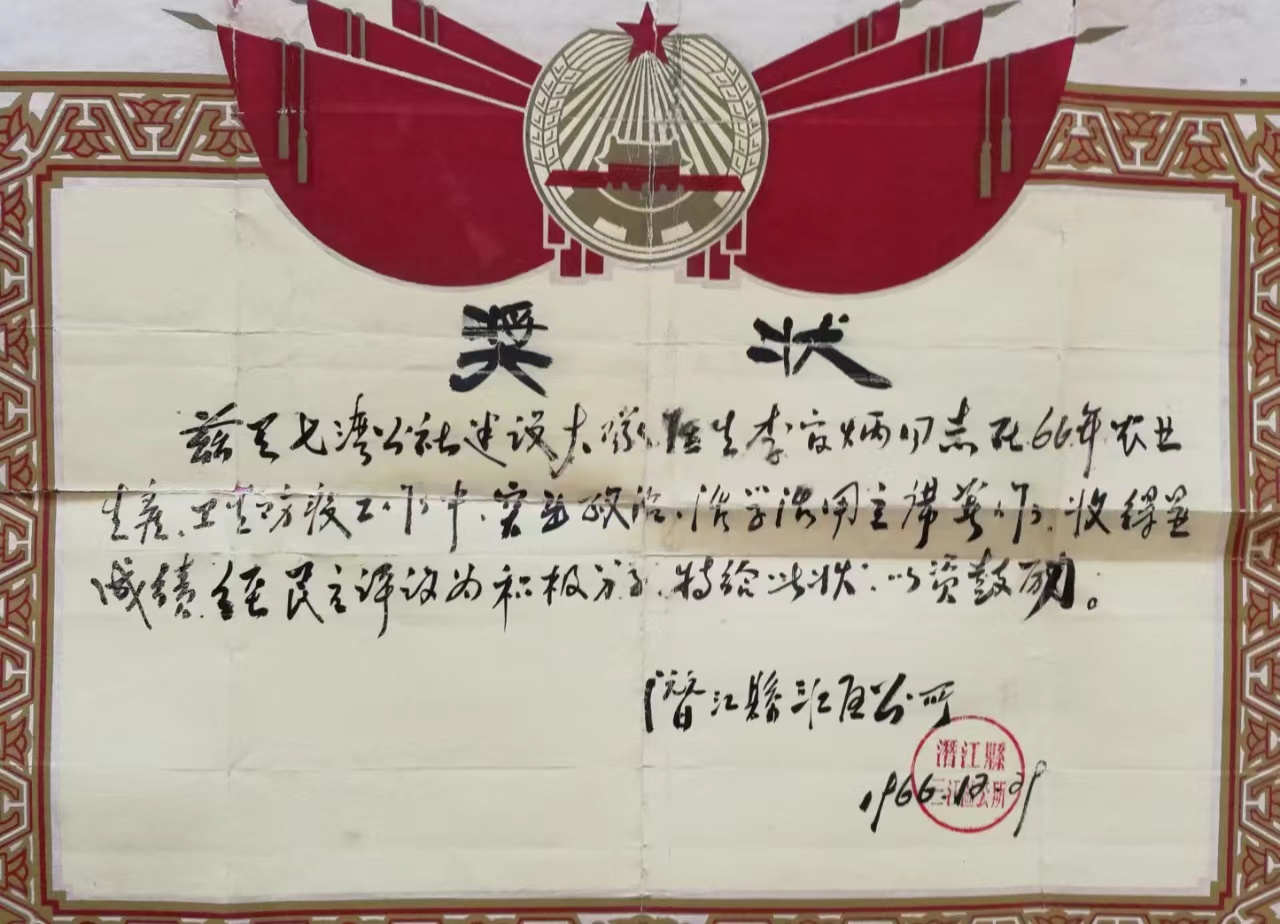 奖 状
兹有七湾公社建设大队医生李官炳同志在66年农业
生产、卫生防疫工作中,突出政治、活学活用主席著作,收得显
成绩,经民主评议为积极分子,特给此状,以资鼓励。
潜江縣三江区公所
潜江縣
三江区公所
1966.12.29